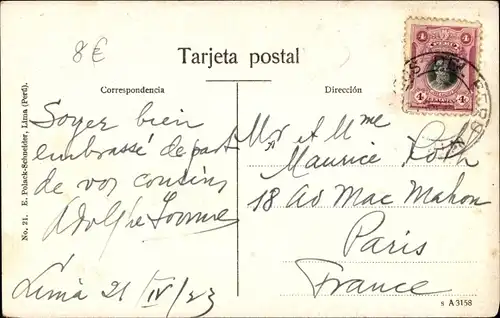 8 €
Tarjeta postal
Correspondencia
Dirección
4 4
4 4
Soyez bien
embrassé de part
de vos cousins
Adolphe
Lima 21/IV/23
Mr et Mme
Maurice Roth
18 Av Mac Mahon
Paris
France
No. 21. E. Polack-Schneider, Lima (Perú).
s A 3158